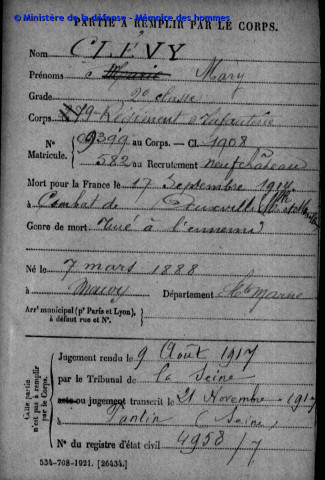 © Ministère de la défense - Mémoire des hommes
PARTIE À REMPLIR PAR LE CORPS.
Nom CLÉVY
Prénoms Mary
Grade 2e classe
Corps 79 Régiment d'Infanterie
N° 09399 au Corps. — Cl. 1908
Matricule. 582 au Recrutement neufchâteau
Mort pour la France le 17 Septembre 1914
à Combat de
Genre de mort Tué à l'ennemi
Né le 7 mars 1888
à Département Hte Marne
Arrt municipal (pr Paris et Lyon),
à défaut rue et N°.
Cette partie
n'est pas à remplir
par le Corps.
Jugement rendu le 9 Août 1917
par le Tribunal de la Seine
acte ou jugement transcrit le 21 Novembre 1917
à Pantin (Seine)
N° du registre d'état civil 4958/7
534-708-1921. [26434.]